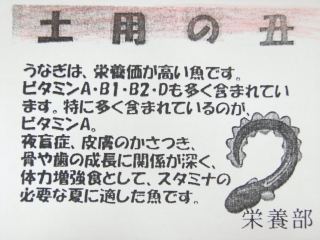 土用の丑
うなぎは、栄養価が高い魚です。
ビタミンA・B1・B2・Dも多く含まれてい
ます。特に多く含まれているのが、
ビタミンA。
夜盲症、皮膚のかさつき、
骨や歯の成長に関係が深く、
体力増強食として、スタミナの
必要な夏に適した魚です。
栄養部